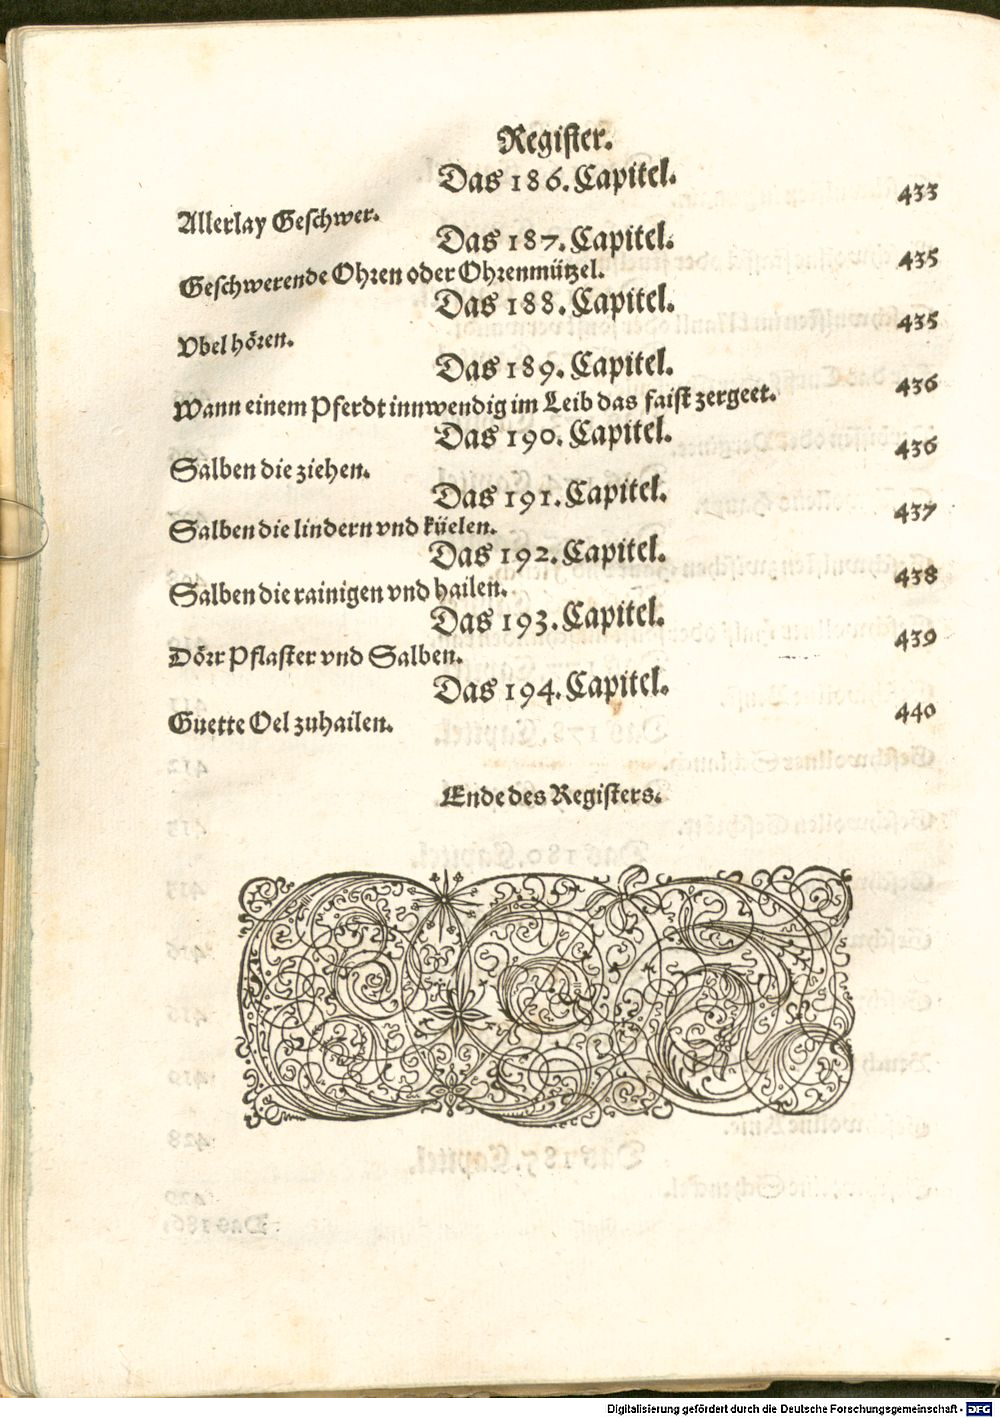 Register.
Das 186. Capitel.
Allerlay Geschwer. 433
Das 187. Capitel.
Geschwerende Ohren oder Ohrenmützel. 435
Das 188. Capitel.
Vbel hören. 435
Das 189. Capitel.
Wann einem Pferdt innwendig im Leib das faist zergeet. 436
Das 190. Capitel.
Salben die ziehen. 436
Das 191. Capitel.
Salben die lindern vnd küelen. 437
Das 192. Capitel.
Salben die rainigen vnd hailen. 438
Das 193. Capitel.
Dörr Pflaster vnd Salben. 439
Das 194. Capitel.
Guette Oel zuhailen. 440
Ende des Registers.
Digitalisierung gefördert durch die Deutsche Forschungsgemeinschaft - DFG